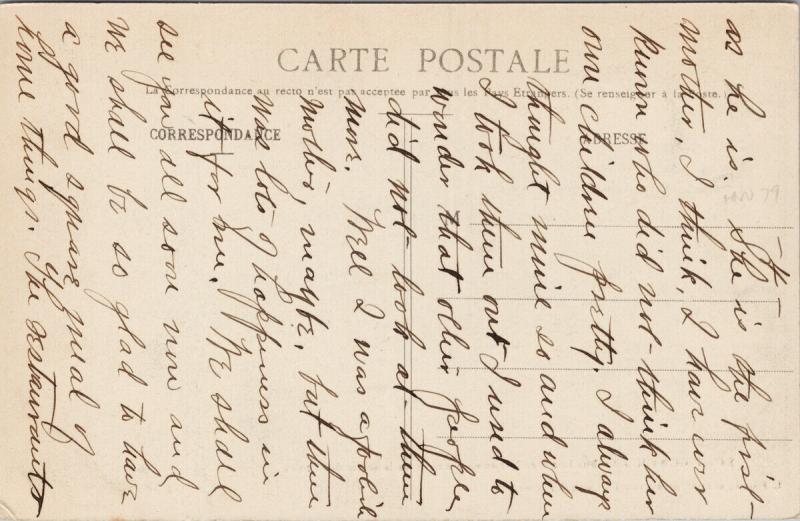 CARTE POSTALE
La Correspondance au recto n'est pas acceptee par tous les Pays Etrangers. (Se renseigner à la Poste.)
CORRESPONDANCE
ADRESSE
as he is. She is the first
mother, I think, I have ever
known who did not think her
own children pretty. I always
thought mine so and when
I took them out I used to
wonder that other people
did not look at them
more. Well I was a foolish
mother, maybe, but there
was lots of happiness in
it for me. We shall
see you all soon now and
we shall be so glad to have
a good square meal of
home things. The restaurants